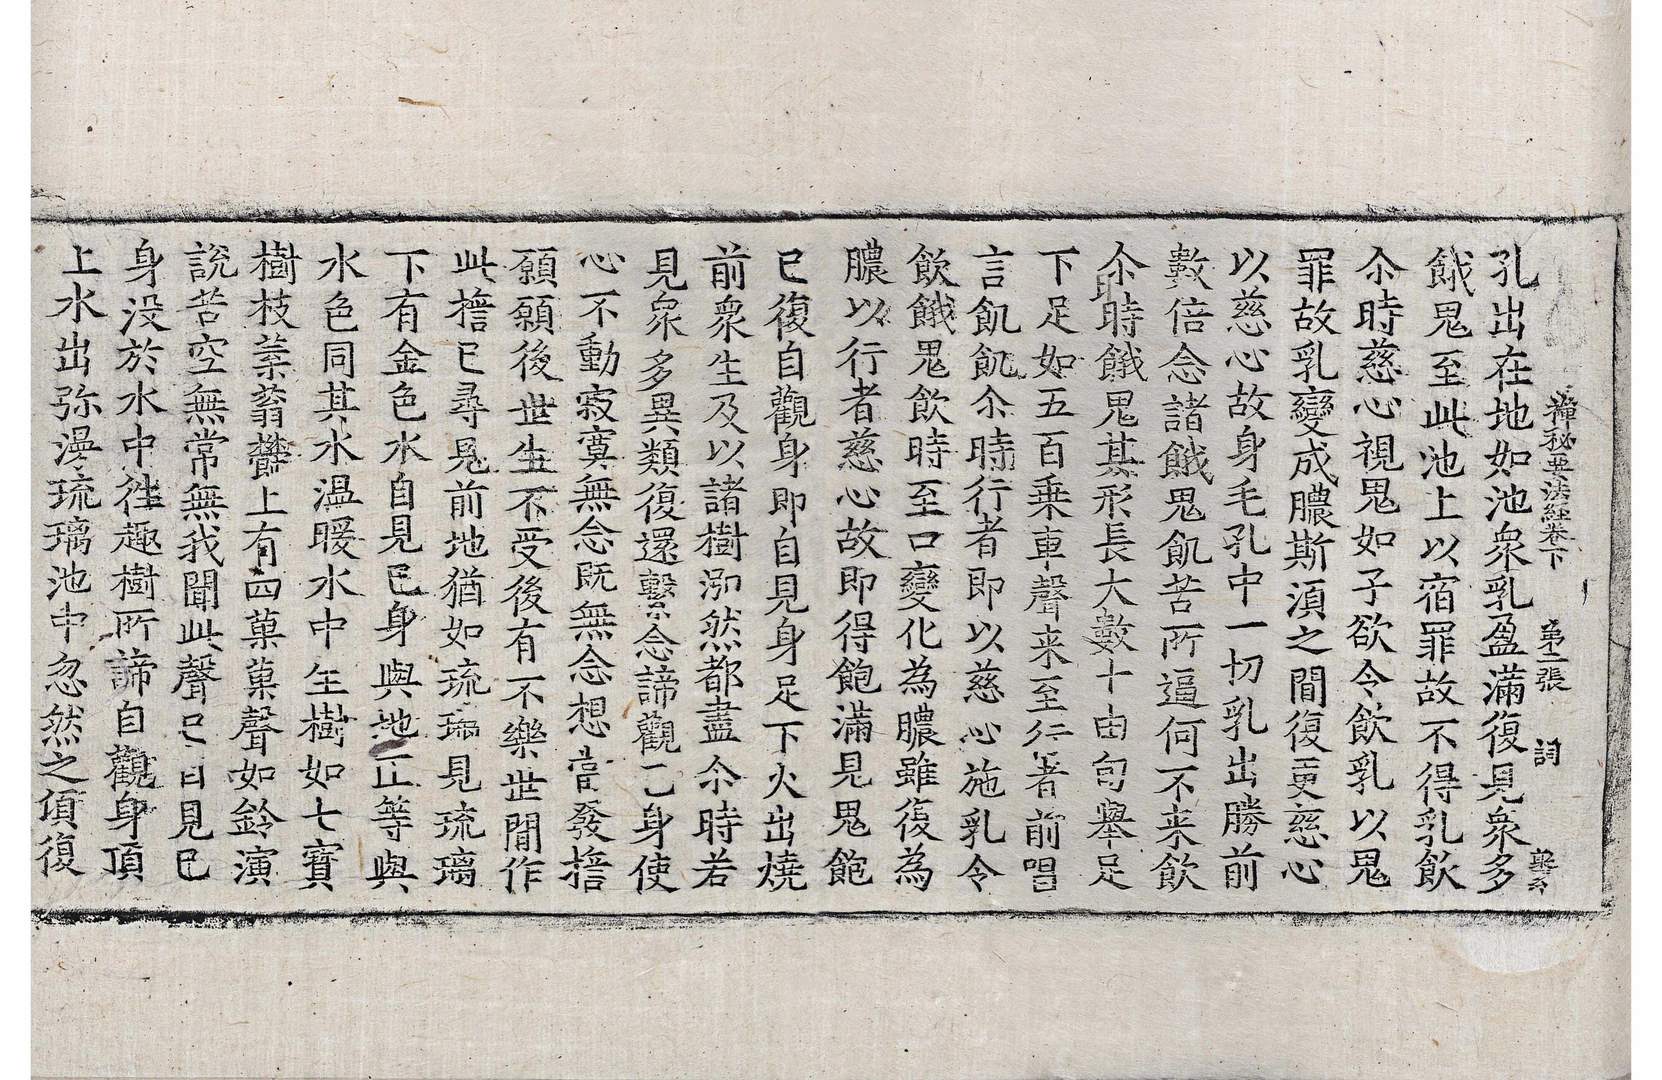 禪秘要法經卷下　第二張　詞
孔出在地如池衆乳盈滿復見衆多
餓鬼至此池上以宿罪故不得乳飲
尒時慈心視鬼如子欲令飲乳以鬼
罪故乳變成膿斯湏之間復更慈心
以慈心故身毛孔中一切乳出勝前
數倍念諸餓鬼飢苦所逼何不来飲
尒時餓鬼其形長大數十由旬舉足
下足如五百乗車聲来至行者前唱
言飢飢尒時行者即以慈心施乳令
飲餓鬼飲時至口變化為膿雖復為
膿以行者慈心故即得飽滿見鬼飽
已復自觀身即自見身足下火出燒
前衆生及以諸樹泖然都盡尒時若
見衆多異類復還繫念諦觀己身使
心不動寂寞無念既無念想當發擔
願願後世生不受後有不樂世間作
此擔已尋見前地猶如琉璃見琉璃
下有金色水自見已身與地正等與
水色同其水温暖水中生樹如七寶
樹枝葉蓊欝上有四菓菓聲如鈴演
說苦空無常無我聞此聲已自見已
身没於水中徃趣樹所諦自觀身頂
上水出弥漫琉璃池中忽然之湏復